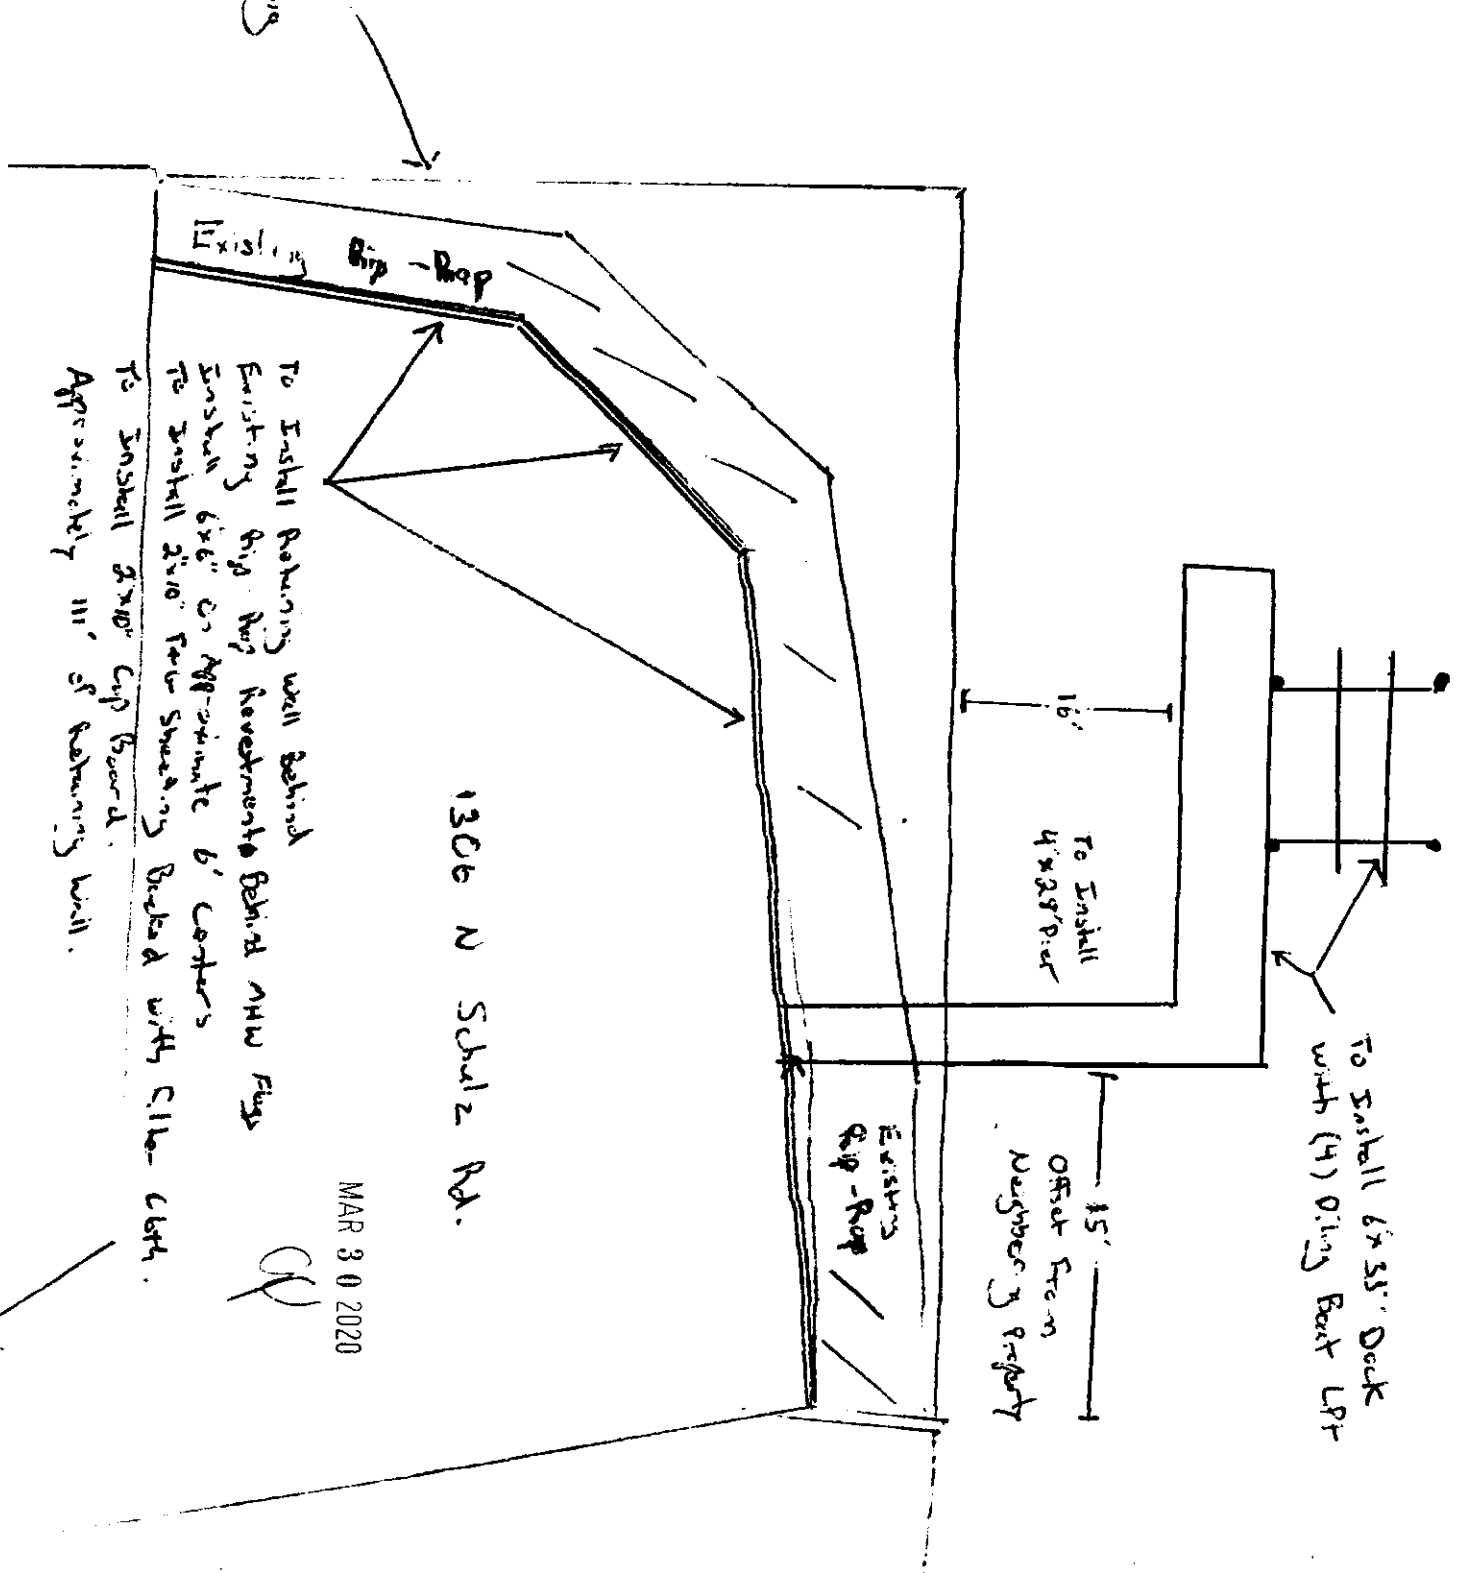 To Install 6'x35' Dock
with (4) Piling Boat Lift
16'
To Install
4'x28' Pier
15'
Offset From
Neighbory Property
Existing
Rip-Rap
Existing Rip-Rap
1306 N Schulz Rd.
To Install Retaining Wall Behind
Existing Rip Rap Revetments Behind MHW Flags
Install 6"x6" on Approximate 6' Centers
To Install 2"x10" T&G Sheeting Backed with Filter Cloth.
To Install 2"x10" Cap Board.
Approximately 111' of Retaining Wall.
MAR 30 2020